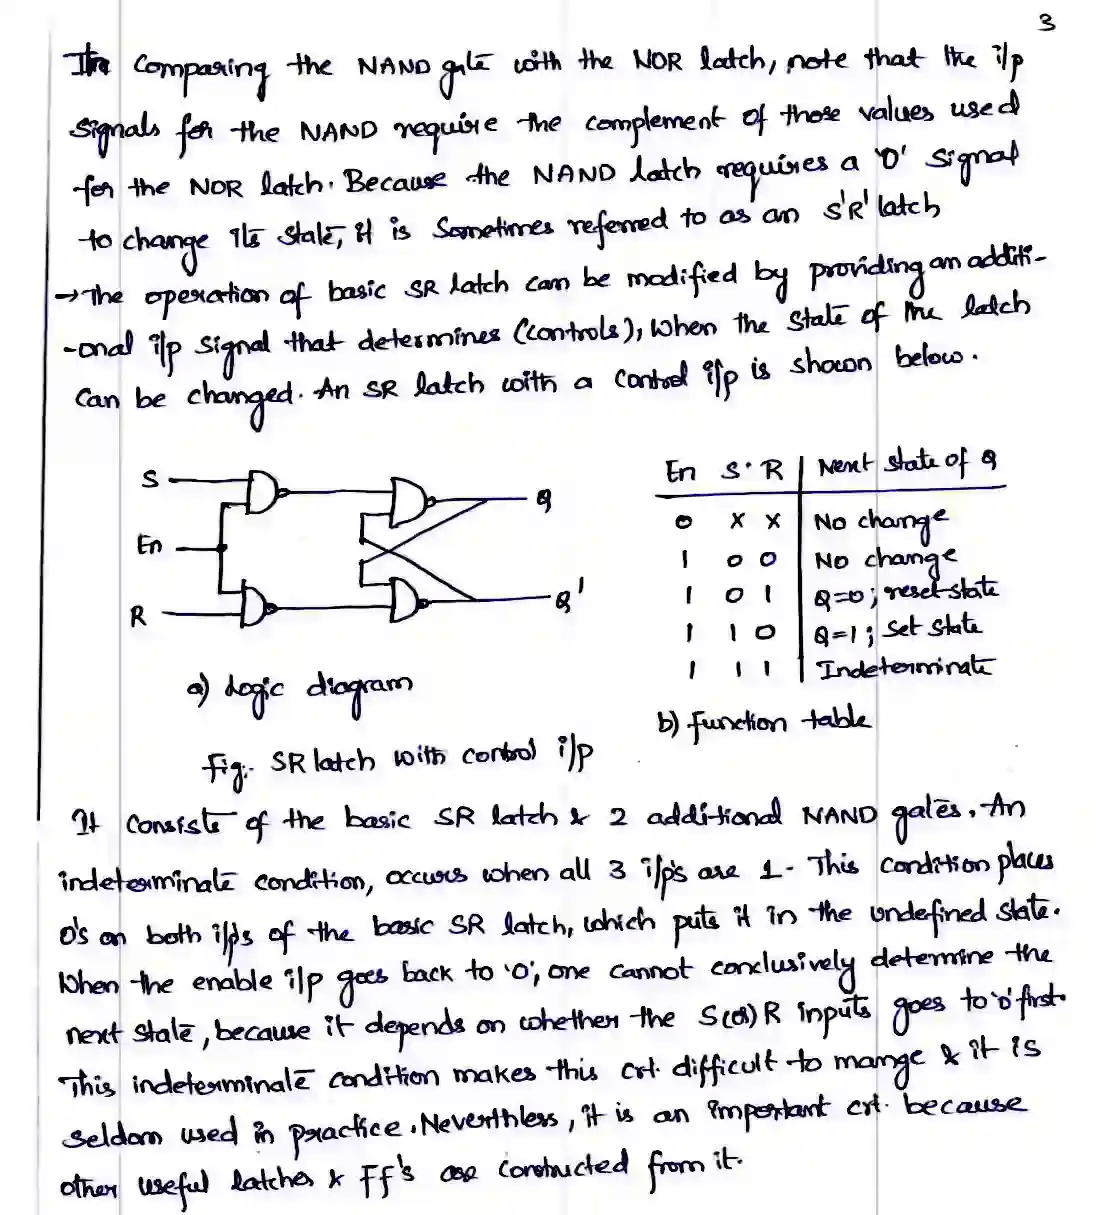 3
In Comparing the NAND gate with the NOR latch, note that the i/p
signals for the NAND require the complement of those values used
for the NOR latch. Because the NAND latch requires a '0' signal
to change its state, it is sometimes referred to as an S'R' latch
→ The operation of basic SR latch can be modified by providing an additi-
-onal i/p signal that determines (controls), when the state of the latch
can be changed. An SR latch with a control i/p is shown below.
S
En
R
Q
Q'
a) Logic diagram
En S R Next state of Q
0 x x No change
1 0 0 No change
1 0 1 Q=0; reset state
1 1 0 Q=1; set state
1 1 1 Indeterminate
b) function table
Fig:- SR latch with control i/p
It consists of the basic SR latch & 2 additional NAND gates. An
indeterminate condition, occurs when all 3 i/p's are 1. This condition places
0's on both i/ps of the basic SR latch, which puts it in the undefined state.
When the enable i/p goes back to '0', one cannot conclusively determine the
next state, because it depends on whether the S(or) R inputs goes to '0' first.
This indeterminate condition makes this crt. difficult to mange & it is
seldom used in practice. Neverthless, it is an important crt. because
other useful latches & FF's are constructed from it.